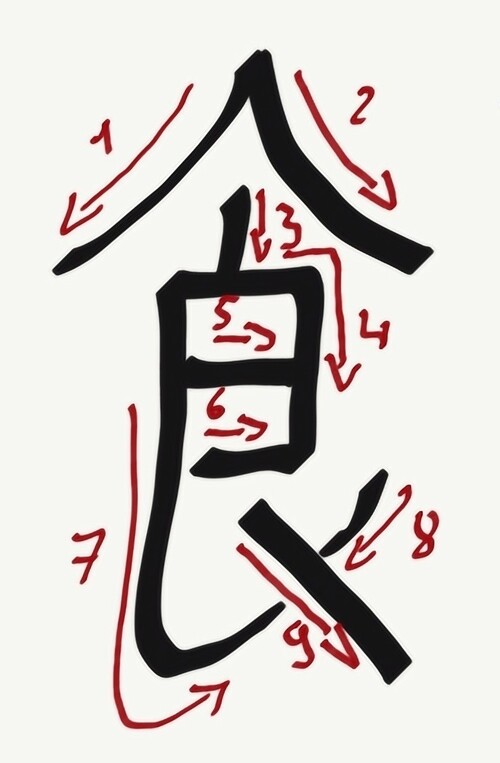 食
1
2
3
4
5
6
7
8
9